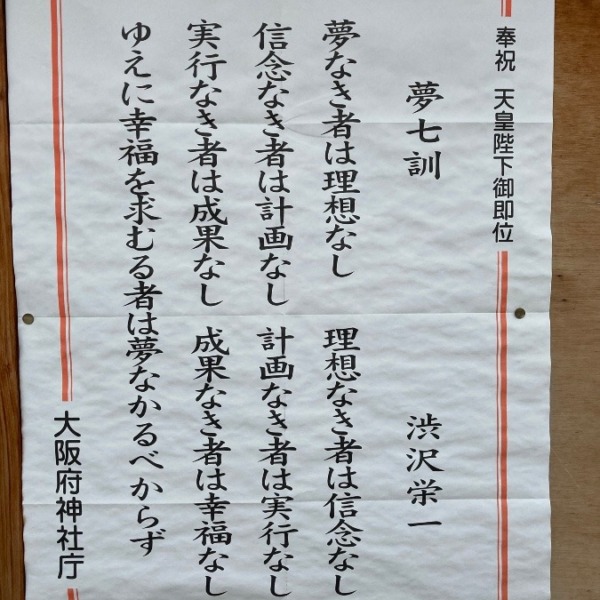 奉祝 天皇陛下御即位
夢七訓 渋沢栄一
夢なき者は理想なし 理想なき者は信念なし
信念なき者は計画なし 計画なき者は実行なし
実行なき者は成果なし 成果なき者は幸福なし
ゆえに幸福を求むる者は夢なかるべからず
大阪府神社庁